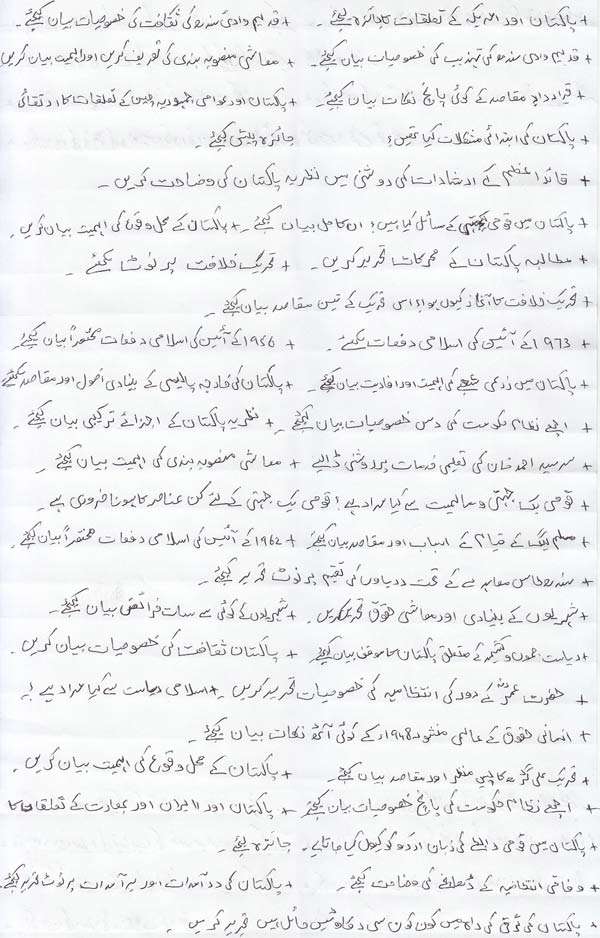 + پاکستان اور امریکہ کے تعلقات کا جائزہ لیجئے۔ + قدیم وادیٔ سندھ کی ثقافت کی خصوصیات بیان کیجئے۔
+ قدیم وادی سندھ کی تہذیب کی خصوصیات بیان کیجئے۔ + معاشی منصوبہ بندی کی تعریف کریں اور اہمیت بیان کریں
+ قرارداد مقاصد کے کوئی پانچ نکات بیان کیجئے۔ + پاکستان اور عوامی جمہوریہ چین کے تعلقات کا ارتقائی
+ پاکستان کی ابتدائی مشکلات کیا تھیں؟ جائزہ پیش کیجئے۔
+ قائداعظم کے ارشادات کی روشنی میں نظریہ پاکستان کی وضاحت کریں۔
+ پاکستان میں قومی کے مسائل کیا ہیں؟ ان کا حل بیان کیجئے۔ + پاکستان کے محل وقوع کی اہمیت بیان کریں۔
+ مطالبہ پاکستان کے محرکات تحریر کریں۔ + تحریک خلافت پر نوٹ لکھئے۔
+ تحریک خلافت کا آغاز کیوں ہوا؟ اس تحریک کے تین مقاصد بیان کیجئے۔
+ 1973 کے آئین کی اسلامی دفعات لکھئے۔ + 1956 کے آئین کی اسلامی دفعات مختصراً بیان کیجئے۔
+ پاکستان میں زرعی شعبے کی اہمیت اور افادیت بیان کیجئے۔ + پاکستان کی خارجہ پالیسی کے بنیادی اصول اور مقاصد لکھئے
+ اچھے نظام حکومت کی دس خصوصیات بیان کیجئے۔ + نظریہ پاکستان کے اجزائے ترکیبی بیان کیجئے۔
+ سرسید احمد خان کی تعلیمی خدمات پر روشنی ڈالیے + معاشی منصوبہ بندی کی اہمیت بیان کیجئے۔
+ قومی یکجہتی و سالمیت سے کیا مراد ہے؟ قومی یک جہتی کے لئے کن عناصر کا ہونا ضروری ہے۔
+ مسلم لیگ کے قیام کے اسباب اور مقاصد بیان کیجئے + 1962 کے آئین کی اسلامی دفعات مختصراً بیان کیجئے
+ سندھ طاس معاہدے کے تحت دریاؤں کی تقسیم پر نوٹ تحریر کیجئے۔
+ شہریوں کے بنیادی اور معاشی حقوق تحریر کریں۔ + شہریوں کے کوئی سے سات فرائض بیان کیجئے۔
+ ریاست جموں و کشمیر کے متعلق پاکستان کا موقف بیان کیجئے + پاکستان ثقافت کی خصوصیات بیان کریں۔
+ حضرت عمرؓ کے دور کی انتظامیہ کی خصوصیات تحریر کریں۔ + اسلامی ریاست سے کیا مراد ہے؟
+ انسانی حقوق کے عالمی منشور 1948ء کے کوئی آٹھ نکات بیان کیجئے۔
+ تحریک علی گڑھ کا پس منظر اور مقاصد بیان کیجئے۔ + پاکستان کے محل وقوع کی اہمیت بیان کریں۔
+ اچھے نظام حکومت کی پانچ خصوصیات بیان کیجئے + پاکستان اور ایران اور بھارت کے تعلقات کا
+ پاکستان میں قومی رابطے کی زبان اردو کو کیوں کہا جاتا ہے۔ جائزہ لیجئے۔
+ وفاقی انتظامیہ کے ڈھانچے کی وضاحت کیجئے۔ + پاکستان کی درآمدات اور برآمدات پر نوٹ تحریر کیجئے
+ پاکستان کی ترقی کی راہ میں کون کون سی رکاوٹیں حائل ہیں تحریر کریں۔